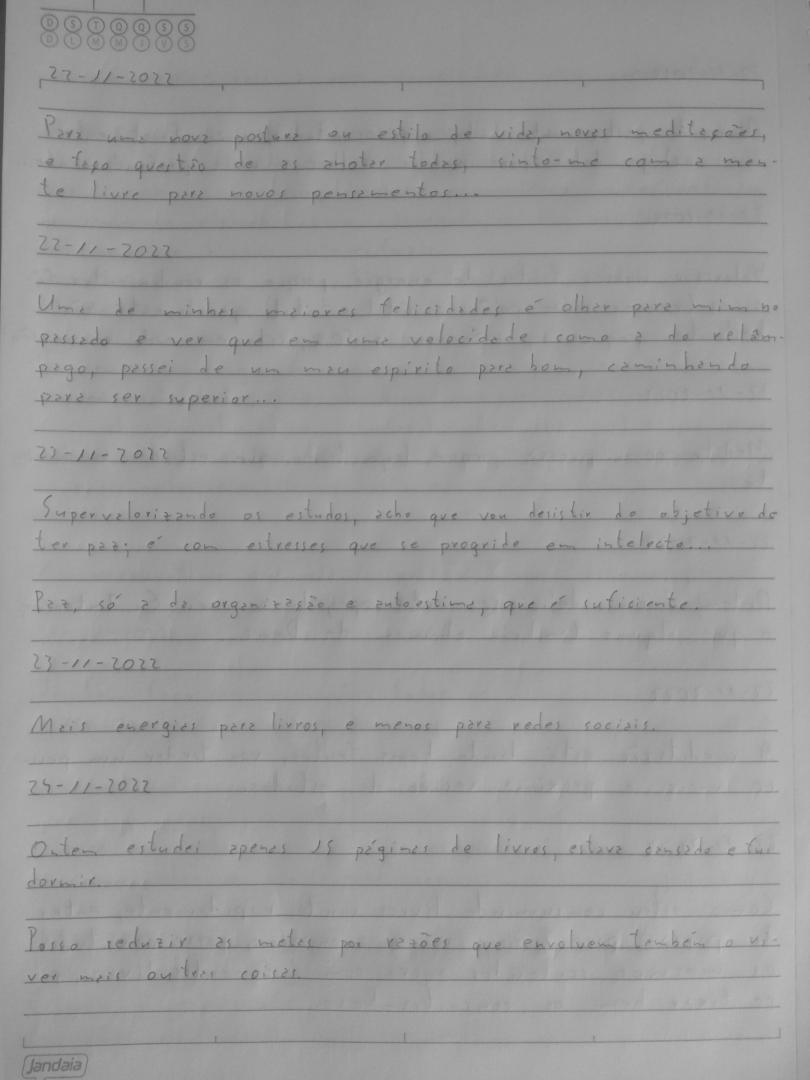 D S T Q Q S S
D L M M J V S
22-11-2022
Para uma nova postura ou estilo de vida, novas meditações,
e faço questão de as anotar todas, sinto-me com a men-
te livre para novos pensamentos...
22-11-2022
Uma de minhas maiores felicidades é olhar para mim no
passado e ver que em uma velocidade como a do relâm-
pago, passei de um mau espírito para bom, caminhando
para ser superior...
22-11-2022
Supervalorizando os estudos, acho que vou desistir do objetivo de
ter paz; é com estresses que se progride em intelecto...
Paz, só a da organização e autoestima, que é suficiente.
23-11-2022
Mais energias para livros, e menos para redes sociais.
24-11-2022
Ontem estudei apenas 15 páginas de livros, estava cansado e fui
dormir.
Posso reduzir as metas por razões que envolvem também o vi-
ver mais outras coisas.
Jandaia